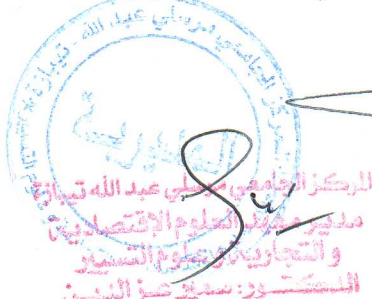 المركز الجامعي مرسلي عبد الله - تيبازة
المديرية
المركز الجامعي مرسلي عبد الله تيبازة
مدير معهد العلوم الاقتصادية
والتجارية وعلوم التسيير